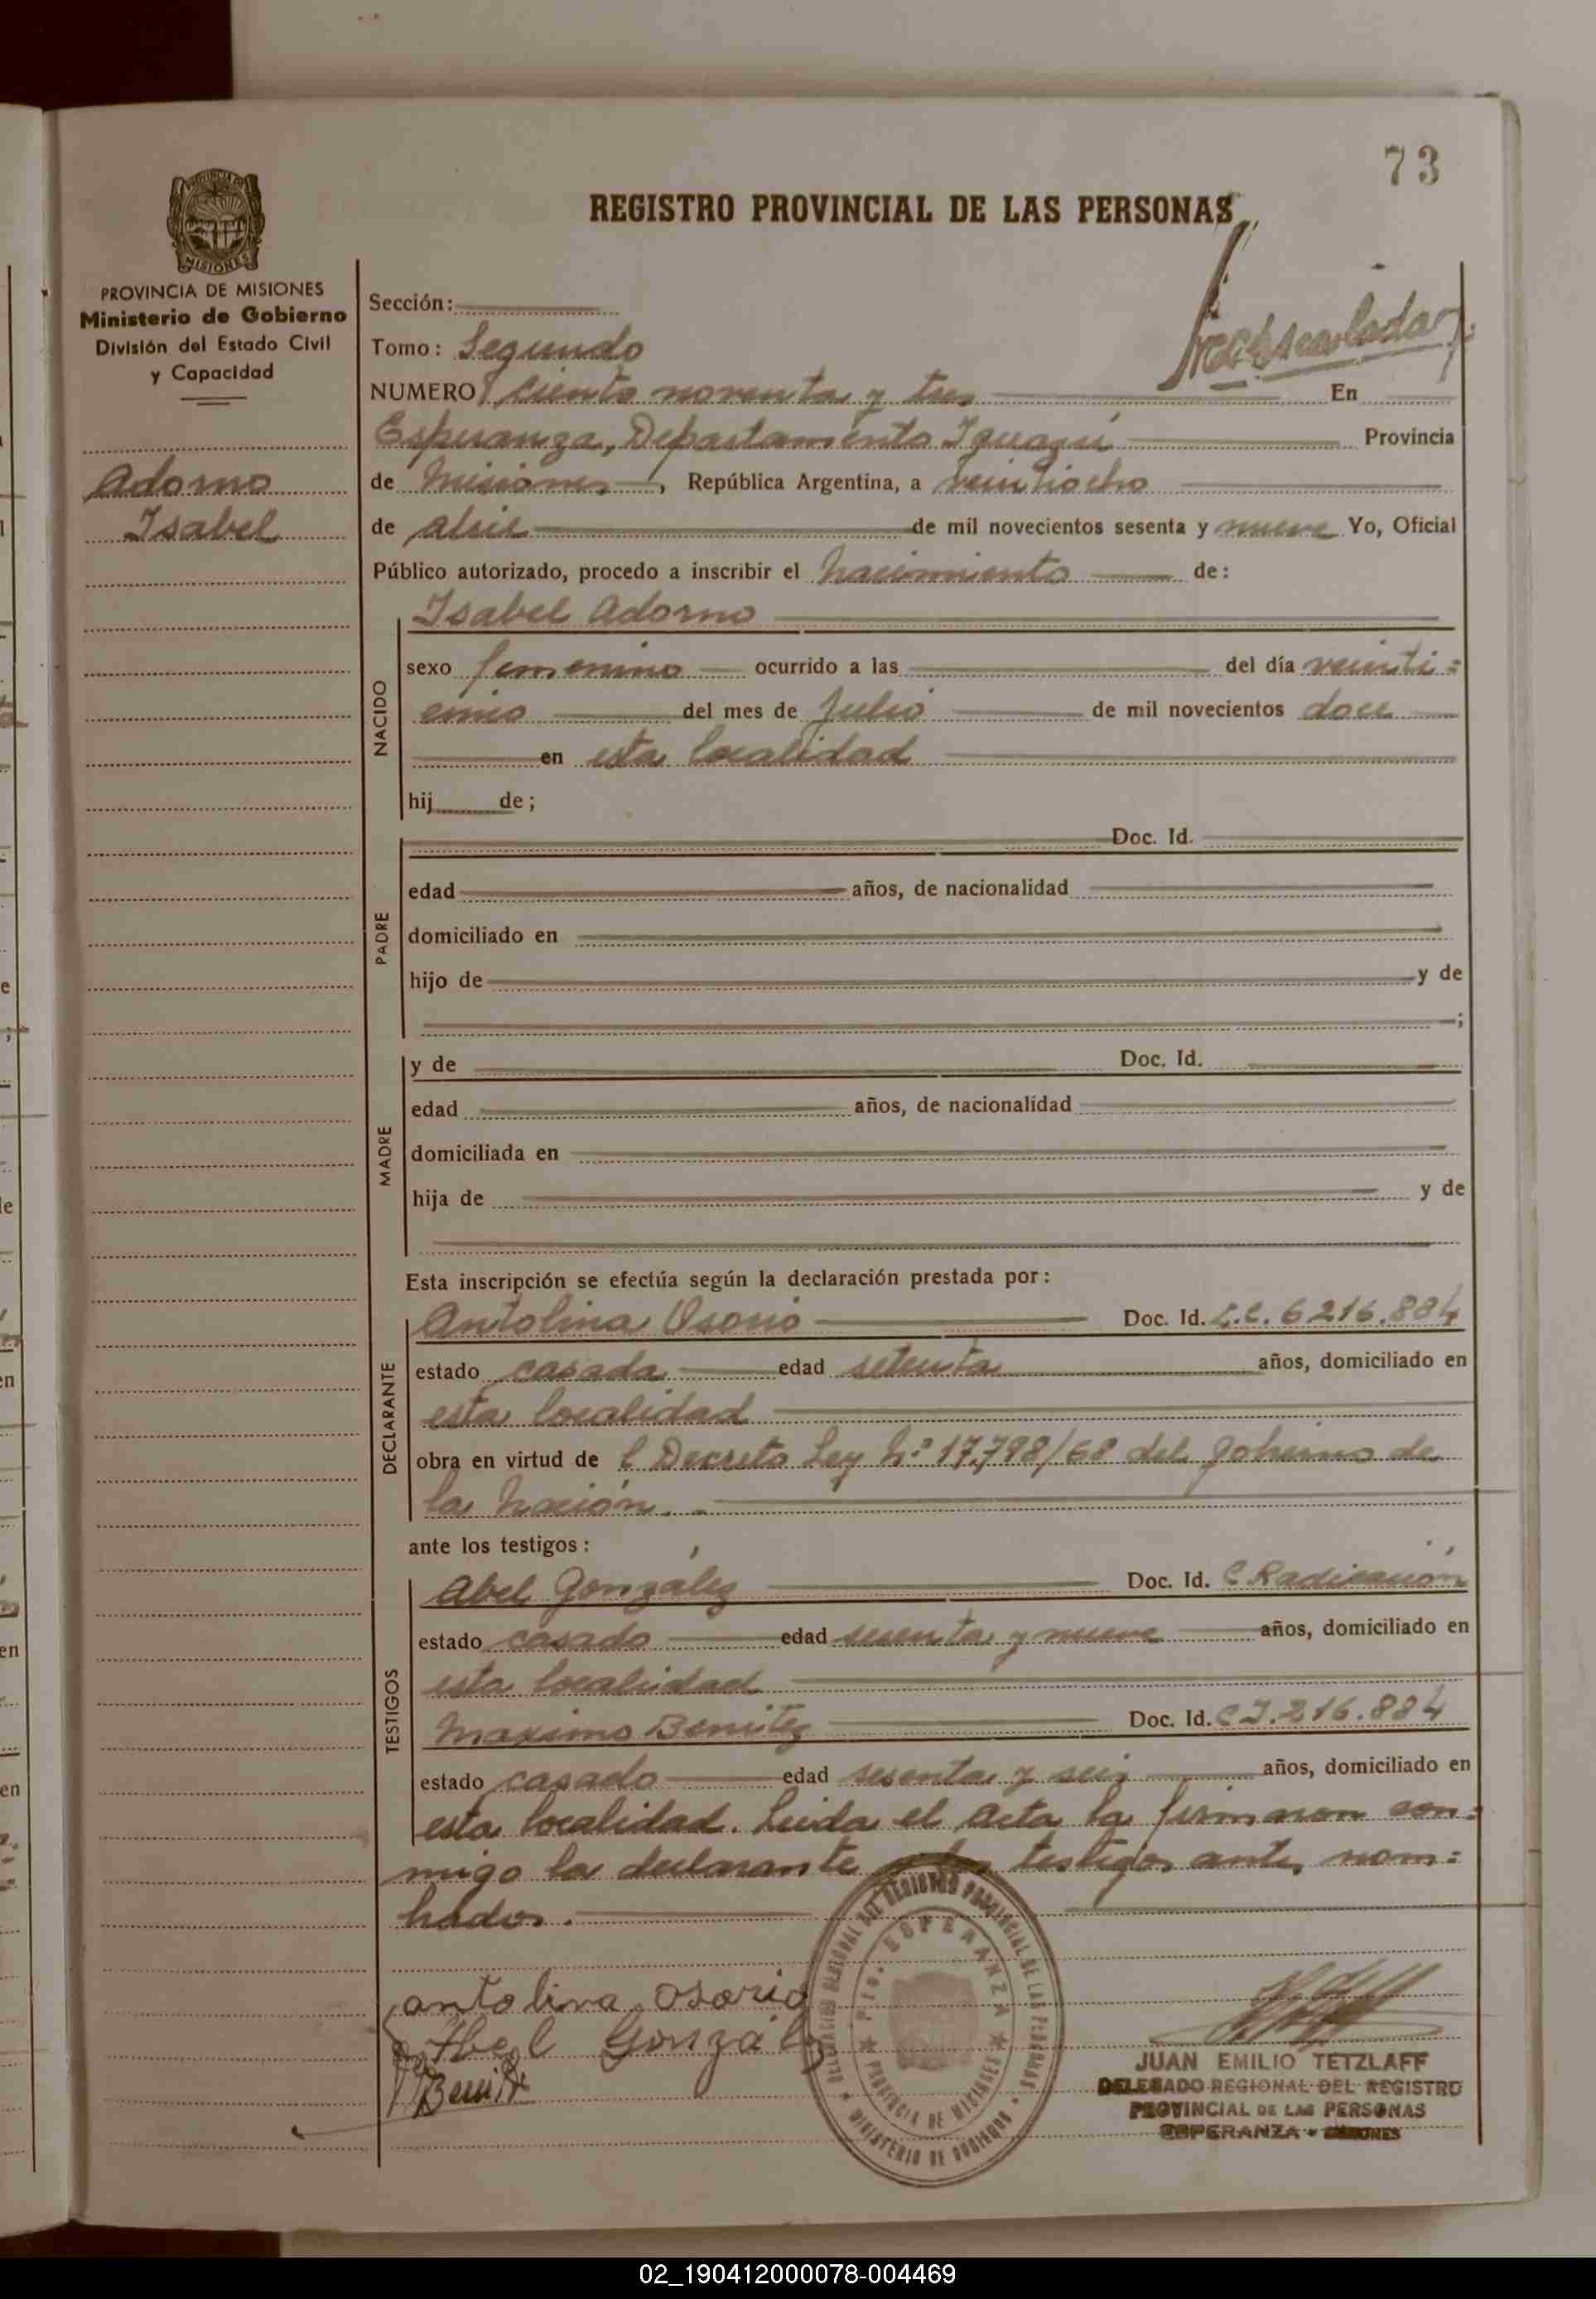 73
REGISTRO PROVINCIAL DE LAS PERSONAS
PROVINCIA DE MISIONES
MISIONES
PROVINCIA DE MISIONES
Ministerio de Gobierno
División del Estado Civil
y Capacidad
Adorno
Isabel
Sección:
Tomo: Segundo
NUMERO ciento noventa y tres En
Esperanza, Departamento Iguazú Provincia
de Misiones, República Argentina, a veintiocho
de abril de mil novecientos sesenta y nueve Yo, Oficial
Público autorizado, procedo a inscribir el nacimiento de:
NACIDO
Isabel Adorno
sexo femenino ocurrido a las del día veinti=
cinco del mes de Julio de mil novecientos doce
en esta localidad
hij de;
PADRE
Doc. Id.
edad años, de nacionalidad
domiciliado en
hijo de y de
;
MADRE
y de Doc. Id.
edad años, de nacionalidad
domiciliada en
hija de y de
Esta inscripción se efectúa según la declaración prestada por:
DECLARANTE
Antolina Osorio Doc. Id. L.C. 6216.884
estado casada edad setenta años, domiciliado en
esta localidad
obra en virtud de l Decreto Ley N.º 17.798/68 del Gobierno de
la Nación.
ante los testigos:
TESTIGOS
Abel González Doc. Id. C Radicación
estado casado edad sesenta y nueve años, domiciliado en
esta localidad
Maximo Benitez Doc. Id. C I. 216.884
estado casado edad sesenta y seis años, domiciliado en
esta localidad. Leida el acta la firmaron con=
migo la declarante y los testigos antes nom=
brados.
antolina osorio
Abel Gonzalez
M Benitz
DELEGACION REGIONAL DEL REGISTRO PROVINCIAL DE LAS PERSONAS
Pto. ESPERANZA
PROVINCIA DE MISIONES
MINISTERIO DE GOBIERNO
JUAN EMILIO TETZLAFF
DELEGADO REGIONAL DEL REGISTRO
PROVINCIAL DE LAS PERSONAS
ESPERANZA - MISIONES
02_190412000078-004469